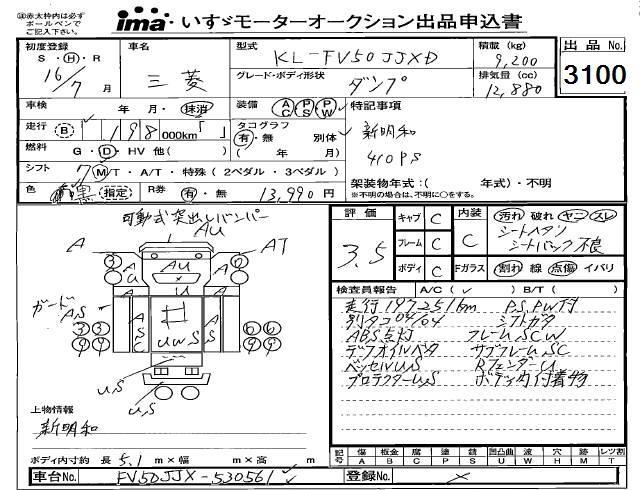 ㊟赤太枠内は必ず
ボールペンで
ご記入下さい。
ima・いすゞモーターオークション出品申込書
初度登録 S・H・R 16/7月
車名 三菱
型式 KL-FV50JJXD
積載(kg) 9,200
グレード・ボディ形状 ダンプ
排気量(cc) 12,880
出品No. 3100
車検 年・月・抹消
装備 AC PS PW
特記事項
新明和
410PS
走行 B 198 000km「 」
タコグラフ 有・無 別体
( 年 月)
燃料 G・D・HV 他( )
シフト 7 M/T・A/T・特殊(2ペダル・3ペダル)
架装物年式:( 年式)・不明
※不明の場合は、不明に○をする。
色 黒 指定
R券 有・無 13,990円
可動式突出しバンパー
AU
A AT
A A
U AU U
ガード
AS
A A
S S
UWS
US
US
3 2
3 3 6 6
9 9 9 9
上物情報
新明和
ボディ内寸約 長 5.1 m×幅 m×高 m
車台No. FV50JJX-530561
評価 3.5
キャブ C
フレーム C
ボディ C
内装 C
Fガラス
汚れ 破れ ヤニ スレ
シートヘタリ
シートバック不良
割れ 線 点傷 イバリ
検査員報告 A/C(✓) B/T( )
走行197251km P.S,PW付
別タコ04/04 シフトガタ
ABS点灯 フレームSCW
デフオイルベタ サブフレームSC
ベッセルUS RフェンダーU
プロテクターUS ボディ内付着物
記号 傷A 板金B 腐C 塗P 錆S 凹凸曲U 波W 穴H 跡M レツ割T
登録No.